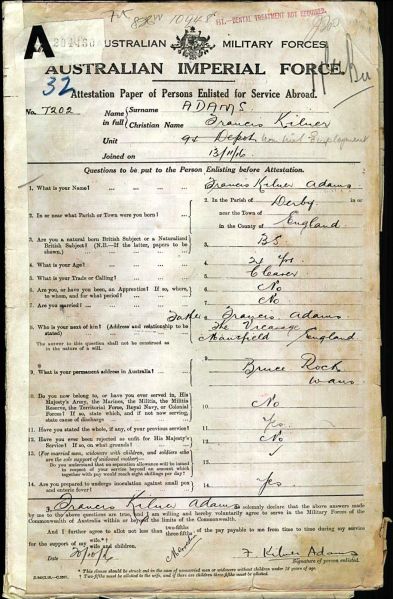 A
AUSTRALIAN MILITARY FORCES.
AUSTRALIAN IMPERIAL FORCE.
32
Attestation Paper of Persons Enlisted for Service Abroad.
No. 7202 Name in full Surname ADAMS.
Christian Name Francis Kilner
Unit 9t Depot
Joined on 13/11/16
Questions to be put to the Person Enlisting before Attestation.
1. What is your Name? 1. Francis Kilner Adams
2. In or near what Parish or Town were you born? 2. In the Parish of Derby in or near the Town of in the County of England
3. Are you a natural born British Subject or a Naturalized British Subject? (N.B.—If the latter, papers to be shown.) 3. BS
4. What is your Age? 4. 21 yrs
5. What is your Trade or Calling? 5. Clearer
6. Are you, or have you been, an Apprentice? If so, where, to whom, and for what period? 6. No
7. Are you married? 7. No
8. Who is your next of kin? (Address and relationship to be stated) Father Francis Adams
The Vicarage
Mansfield England
The answer to this question shall not be construed as in the nature of a will.
9. What is your permanent address in Australia? 9. Bruce Rock
10. Do you now belong to, or have you ever served in, His Majesty's Army, the Marines, the Militia, the Militia Reserve, the Territorial Force, Royal Navy, or Colonial Forces? If so, state which, and if not now serving, state cause of discharge 10. No
11. Have you stated the whole, if any, of your previous service? 11. Yes
12. Have you ever been rejected as unfit for His Majesty's Service? If so, on what grounds? 12. No
13. (For married men, widowers with children, and soldiers who are the sole support of widowed mother)—
Do you understand that no separation allowance will be issued in respect of your service beyond an amount which together with pay would reach eight shillings per day? 13.
14. Are you prepared to undergo inoculation against small pox and enteric fever? 14. Yes
I, Francis Kilner Adams solemnly declare that the above answers made by me to the above questions are true, and I am willing and hereby voluntarily agree to serve in the Military Forces of the Commonwealth of Australia within or beyond the limits of the Commonwealth.
And I further agree to allot not less than two-fifths three-fifths of the pay payable to me from time to time during my service for the support of my wife.* wife and children.
Date
F. Kilner Adams
Signature of person enlisted.